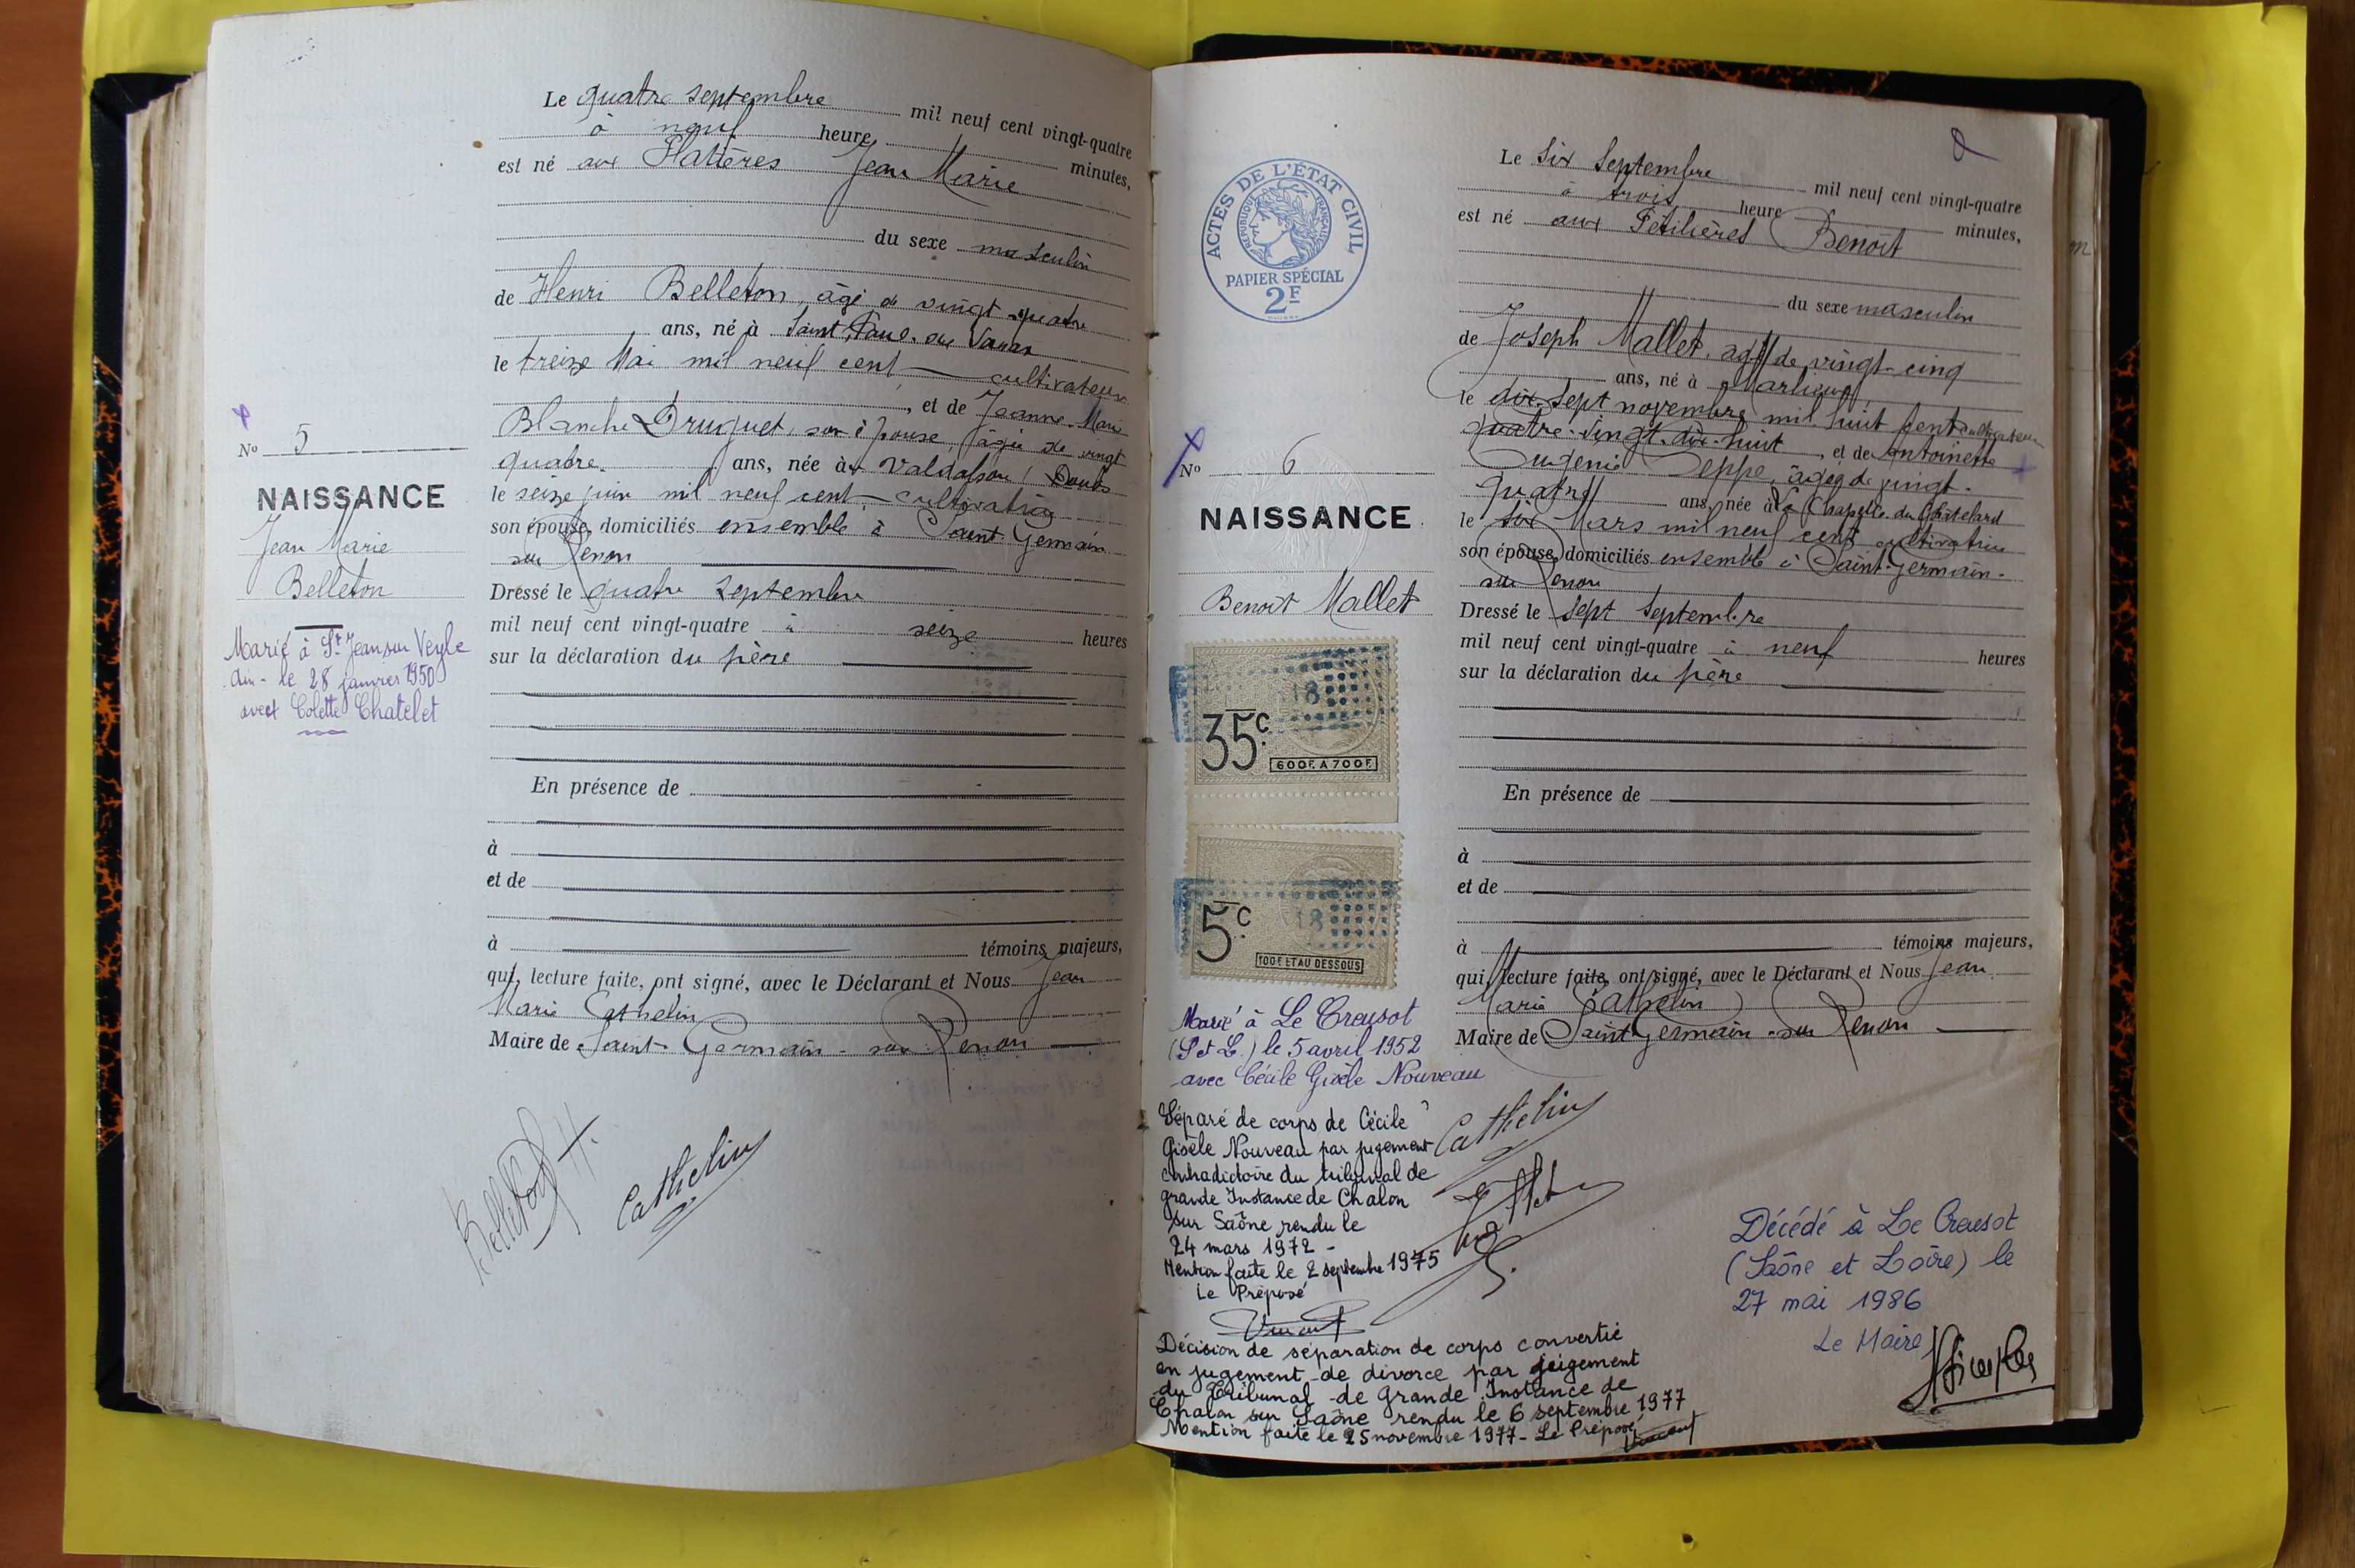 Le quatre septembre mil neuf cent vingt-quatre
à neuf heure minutes,
est né aux Jean Marie
du sexe masculin
de Henri Belleton, âgé de vingt-quatre
ans, né à Saint Paul de Varax
le treize Mai mil neuf cent cultivateur
, et de Jeanne-Marie
Blanche Druguet, son épouse, âgée de vingt
quatre ans, née à Valdahon (Doubs
le seize juin mil neuf cent cultivatrice
son épouse, domiciliés ensemble à Saint Germain
sur Renon
Dressé le quatre septembre
mil neuf cent vingt-quatre à seize heures
sur la déclaration du père
En présence de
à
et de
à témoins majeurs,
qui, lecture faite, ont signé, avec le Déclarant et Nous Jean
Marie Cathelin
Maire de Saint-Germain-sur Renon
Belleton H.
Cathelin
No 5
NAISSANCE
Jean Marie
Belleton
Marié à St Jean sur Veyle
Ain - le 28 janvier 1950
avec Colette Chatelet
ACTES DE L'ÉTAT CIVIL
RÉPUBLIQUE FRANÇAISE
PAPIER SPÉCIAL
2F
No 6
NAISSANCE
Benoît Mallet
18
35c.
600F. A 700F.
18
5c.
100F ET AU DESSOUS
Marié à Le Creusot
(S et L.) le 5 avril 1952
avec Cécile Gisèle Nouveau
Séparé de corps de Cécile
Gisèle Nouveau par jugement
contradictoire du tribunal de
grande Instance de Chalon
sur Saône rendu le
24 mars 1972 -
Mention faite le 2 septembre 1975
Le Préposé
Décision de séparation de corps convertie
en jugement de divorce par jugement
du Tribunal de Grande Instance de
Chalon sur Saône rendu le 6 septembre 1977
Mention faite le 25 novembre 1977 - Le Préposé
Le six Septembre mil neuf cent vingt-quatre
à trois heure minutes,
est né aux Benoît
du sexe masculin
de Joseph Mallet, âgé de vingt-cinq
ans, né à Marlieux
le dix-sept novembre mil huit cent cultivateur
quatre-vingt-dix-huit, et de Antoinette
Eugénie Peppe, âgée de vingt-
quatre ans, née à La Chapelle du Châtelard
le six Mars mil neuf cent cultivatrice
son épouse, domiciliés ensemble à Saint-Germain-
sur Renon
Dressé le sept Septembre
mil neuf cent vingt-quatre à neuf heures
sur la déclaration du père
En présence de
à
et de
à témoins majeurs,
qui, lecture faite, ont signé, avec le Déclarant et Nous Jean
Marie Cathelin
Maire de Saint-Germain-sur Renon
Cathelin
Décédé à Le Creusot
(Saône et Loire) le
27 mai 1986
Le Maire